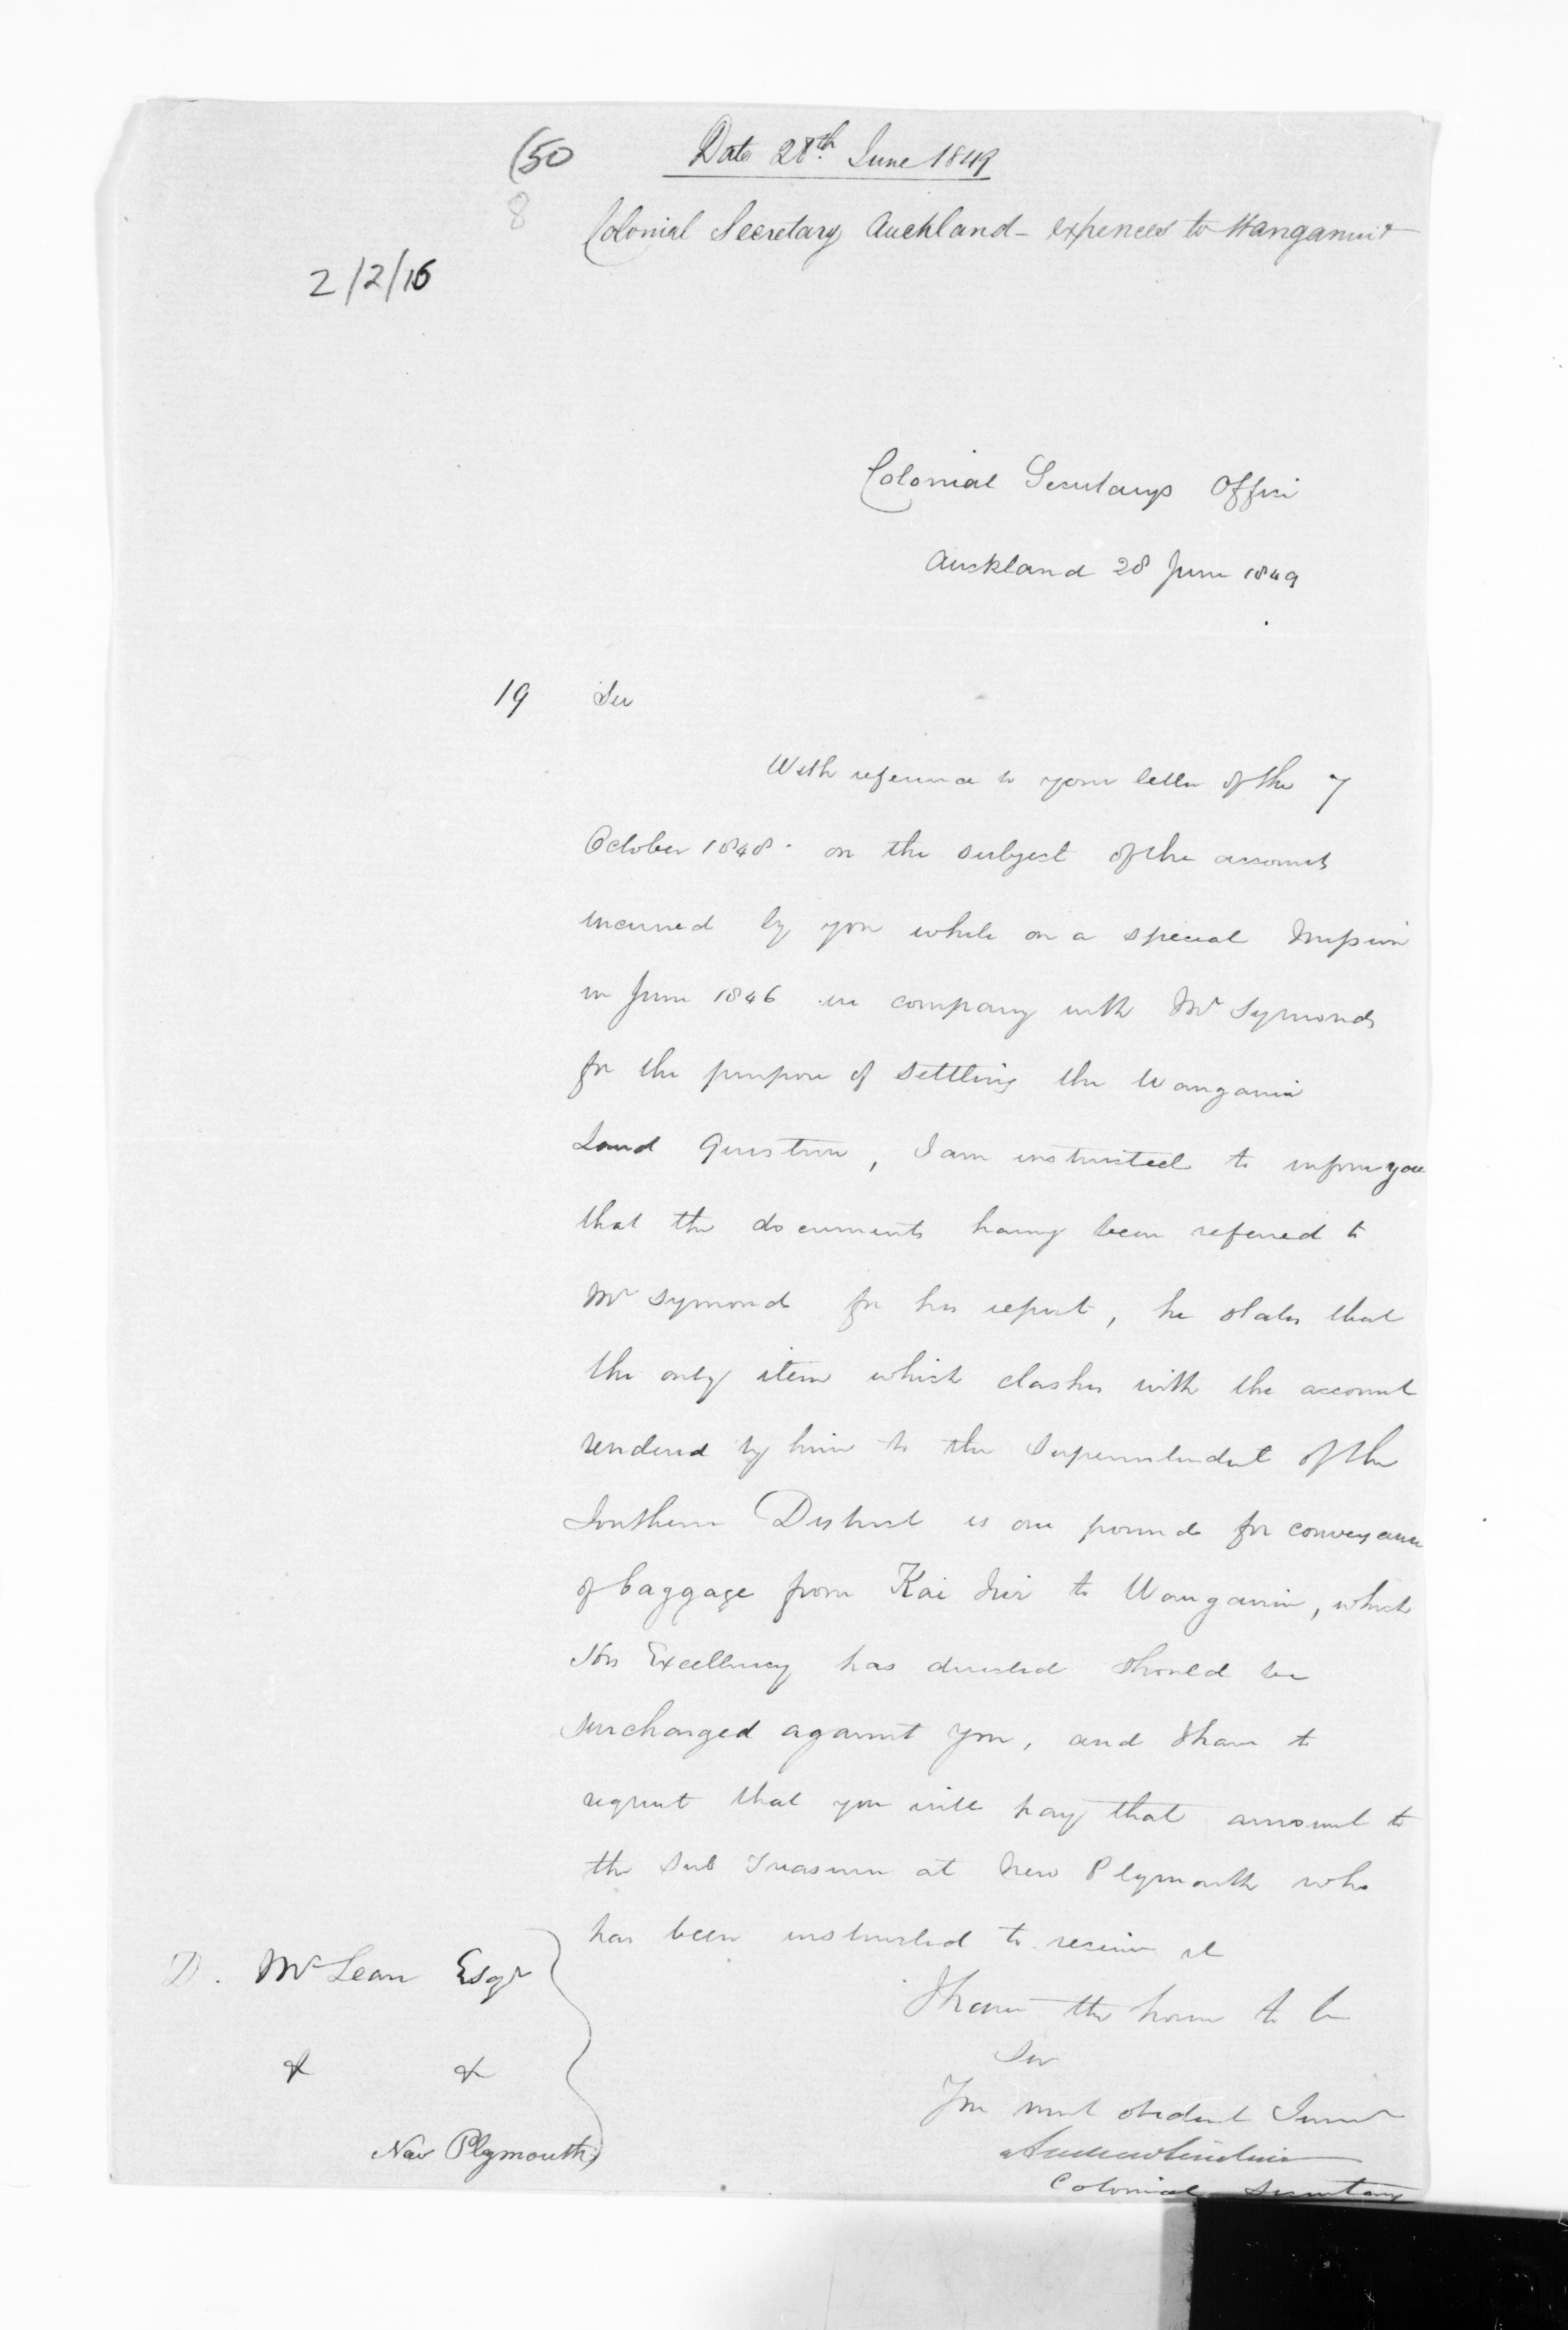 (50 Date 28th June 1849
8
Colonial Secretary Auckland - expences to Wanganui
2/2/16
Colonial Secretarys Office
Auckland 28 June 1849
19 Sir
With reference to your letter of the 7
October 1848. on the subject of the accounts
incurred by you while on a special Mission
in June 1846 in company with Mr Symonds
for the purpose of settling the Wanganui
Land Question, I am instructed to inform you
that the documents having been referred to
Mr Symond for his report, he states that
the only item which clashes with the account
rendered by him to the Superintendent of the
Southern District is one pound for conveyance
of baggage from Kai Iwi to Wanganui, which
His Excellency has directed should be
surcharged against you, and I have to
request that you will pay that amount to
the Sub Treasurer at New Plymouth who
has been instructed to receive it
I have the honor to be
Sir
Your most obedient Servant
Andrew Sinclair
Colonial Secretary
D. McLean Esqr
& &
New Plymouth